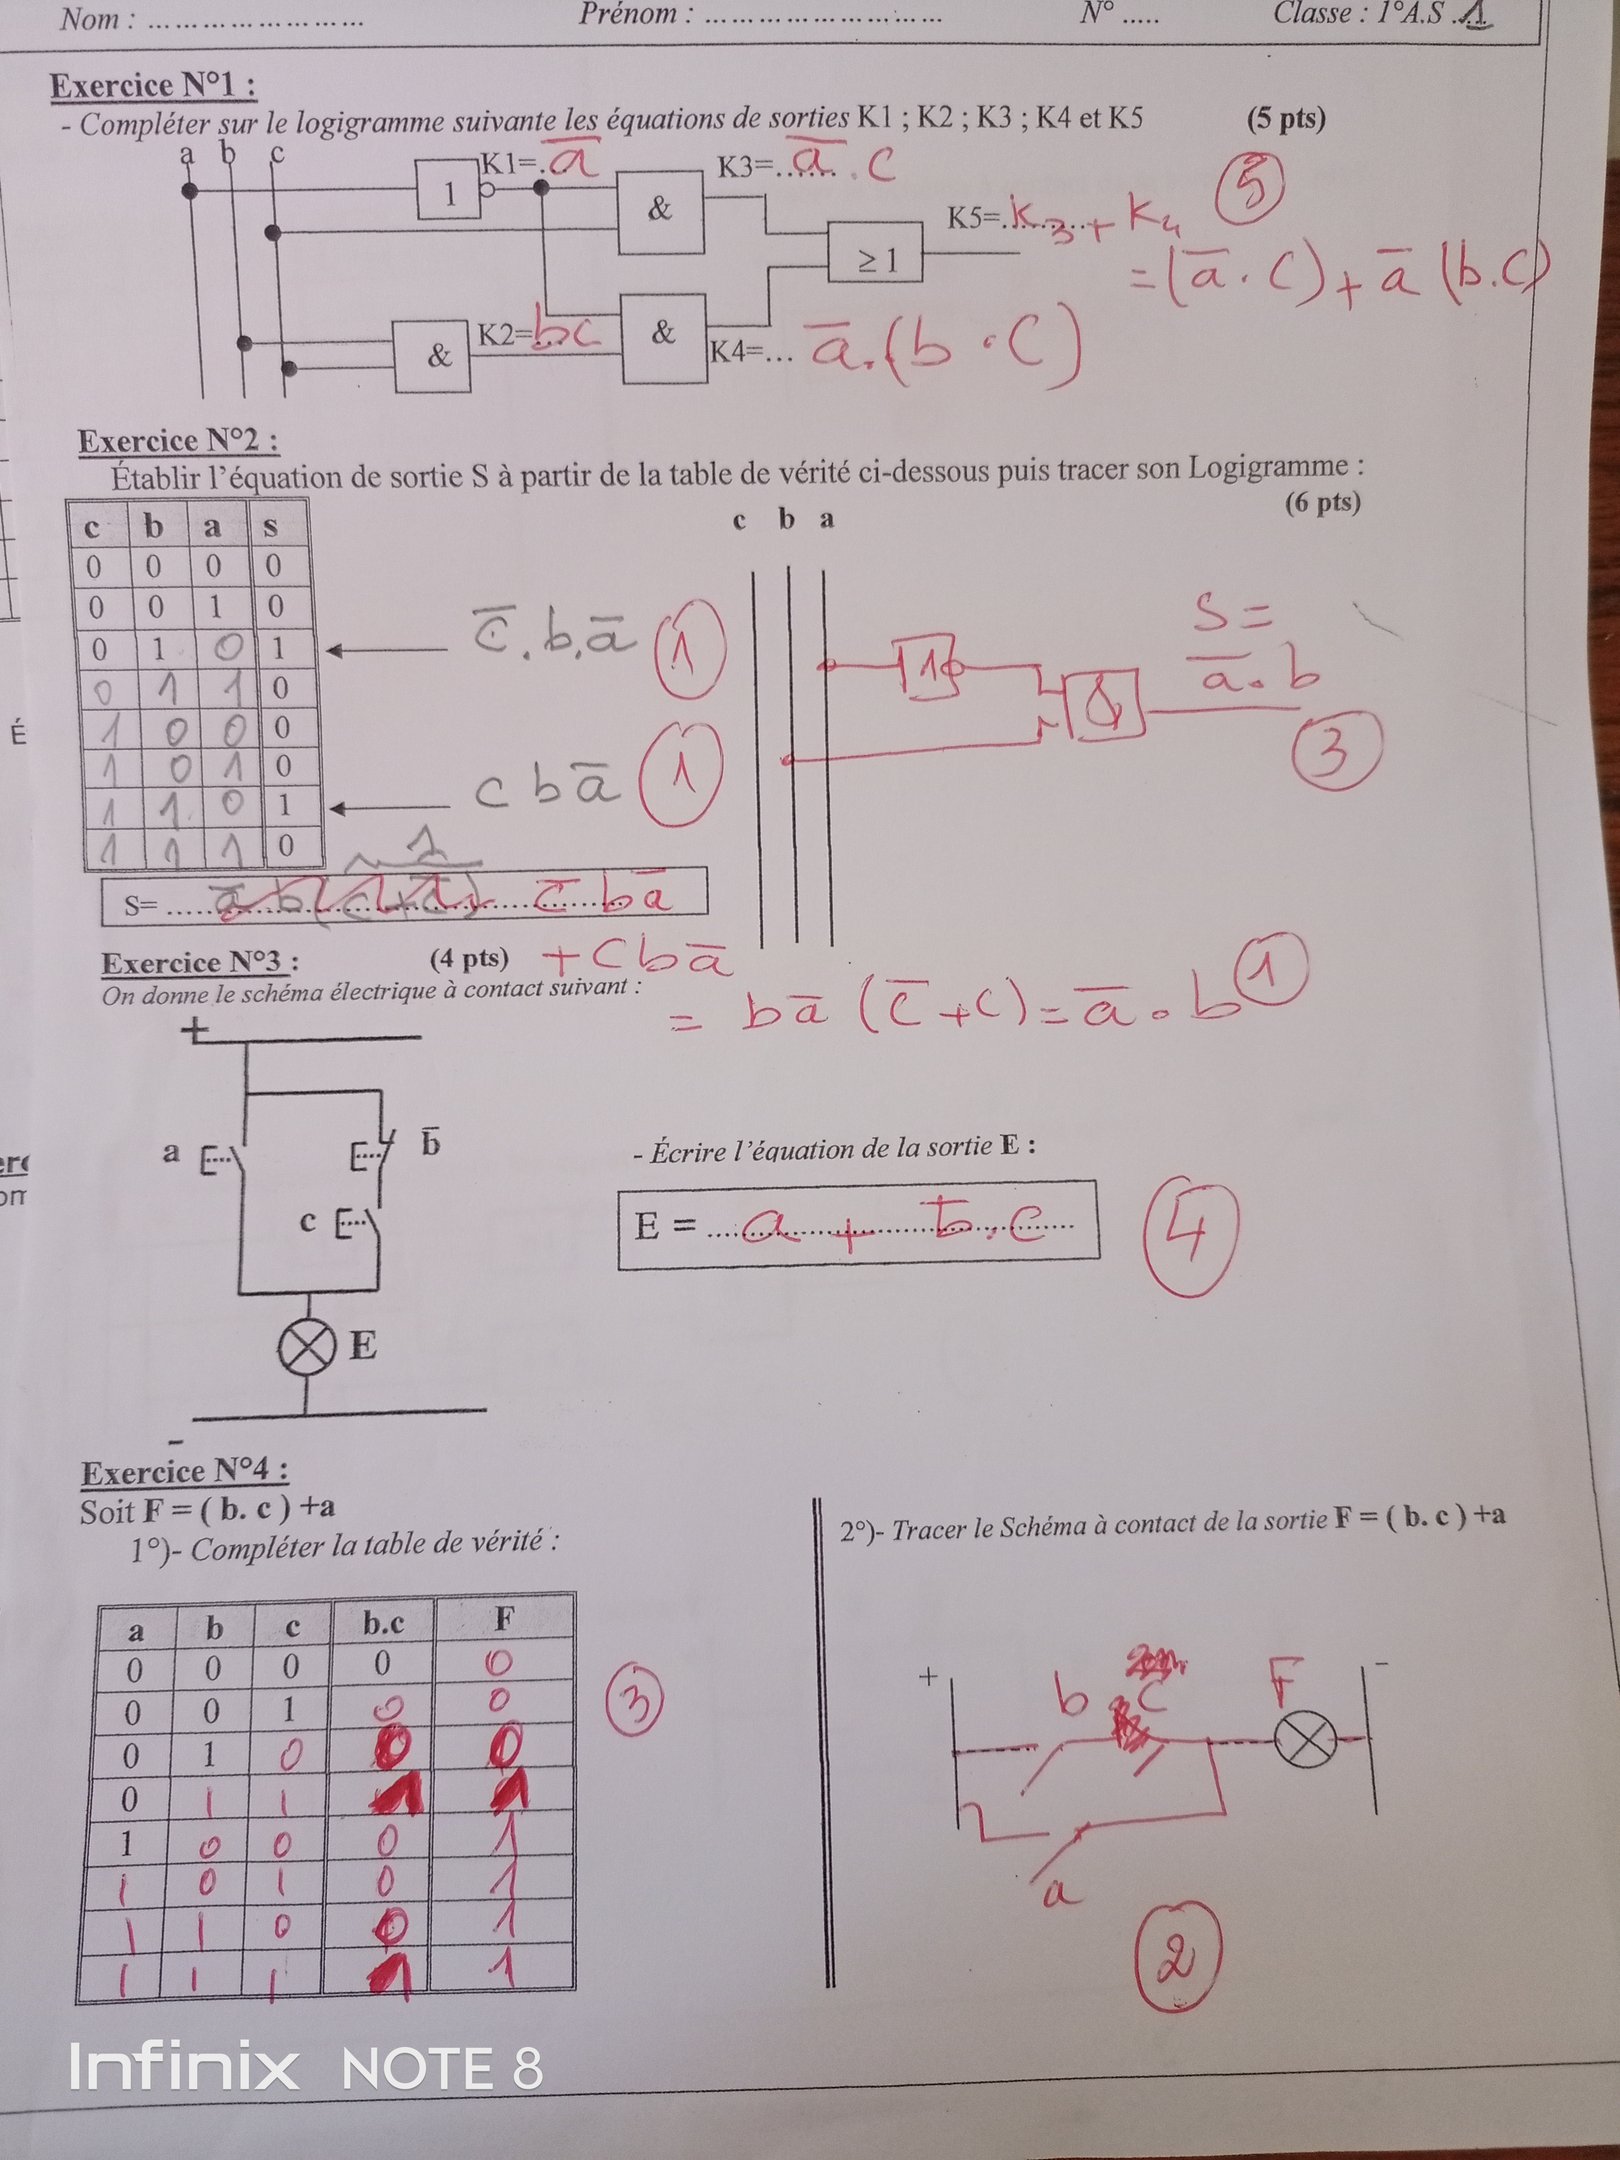 Nom : ........................ Prénom : ........................... N° ..... Classe : 1°A.S .1.
Exercice N°1 :
- Compléter sur le logigramme suivante les équations de sorties K1 ; K2 ; K3 ; K4 et K5 (5 pts)
a b c
K1=. a̅
K3=....... a̅ . c
5
1
&
K5=.......... K3 + K4
≥ 1
= (a̅ . C) + a̅ (b.C)
K2=... bc
&
&
K4=... a̅.(b . C)
Exercice N°2 :
Établir l’équation de sortie S à partir de la table de vérité ci-dessous puis tracer son Logigramme :
(6 pts)
c b a s
0 0 0 0
0 0 1 0
0 1 0 1
0 1 1 0
1 0 0 0
1 0 1 0
1 1 0 1
1 1 1 0
c̅ . b . a̅ 1
c b a̅ 1
1
c b a
1
&
S =
a̅ . b
3
S= ..... c̅ b a̅
+ C b a̅
= b a̅ (c̅ + c) = a̅ . b 1
Exercice N°3 : (4 pts)
On donne le schéma électrique à contact suivant :
+
a
b̅
c
E
-
- Écrire l’équation de la sortie E :
E = .... a + b̅ . c
4
Exercice N°4 :
Soit F = ( b. c ) +a
1°)- Compléter la table de vérité :
a b c b.c F
0 0 0 0 0
0 0 1 0 0
0 1 0 0 0
0 1 1 1 1
1 0 0 0 1
1 0 1 0 1
1 1 0 0 1
1 1 1 1 1
3
2°)- Tracer le Schéma à contact de la sortie F = ( b. c ) +a
+
b
C
F
-
a
2
É
Infinix NOTE 8